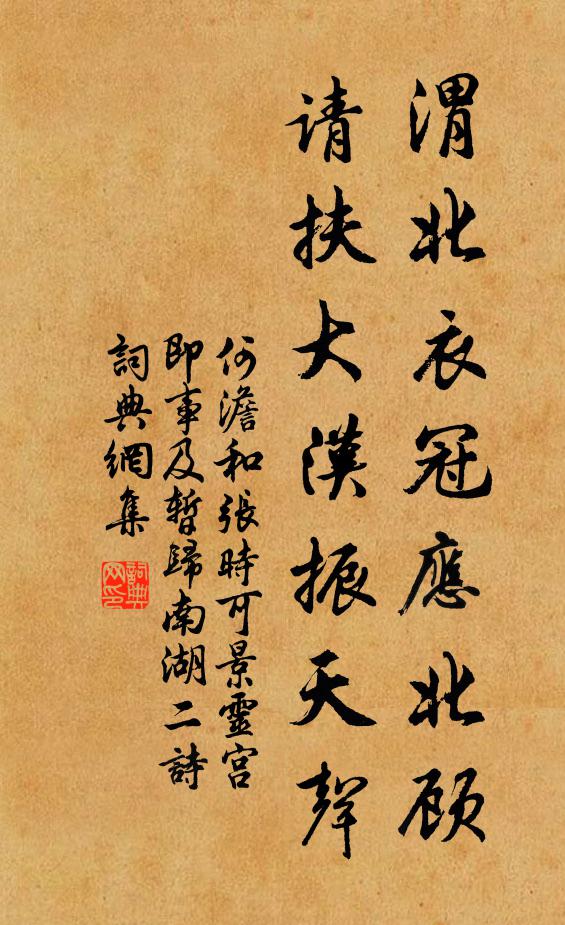 渭北衣冠應北顾
请扶大漢振天聲
何澹和張時可景靈宮
即事及暫歸南湖二詩
詞典網集
詞典网印